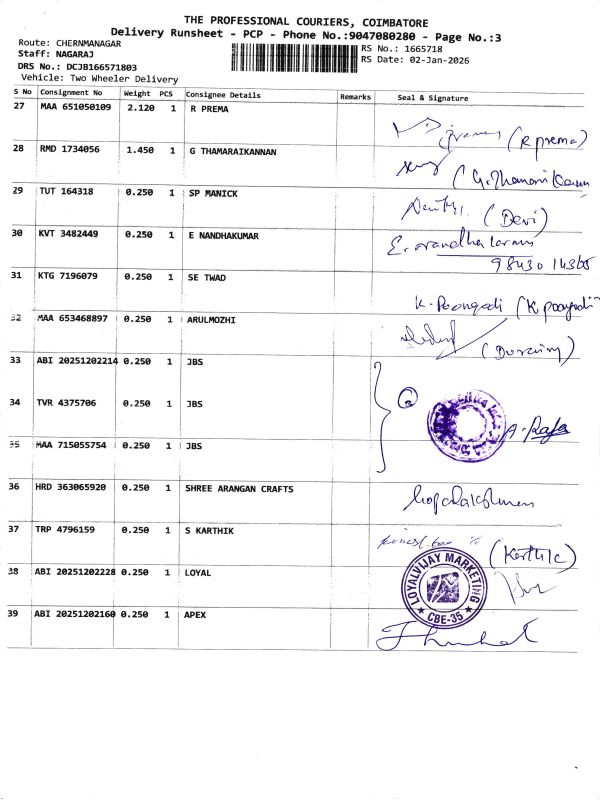 THE PROFESSIONAL COURIERS, COIMBATORE
Delivery Runsheet - PCP - Phone No.:9047080280 - Page No.:3
Route: CHERNMANAGAR
Staff: NAGARAJ
DRS No.: DCJB166571803
Vehicle: Two Wheeler Delivery
RS No.: 1665718
RS Date: 02-Jan-2026
S No Consignment No Weight PCS Consignee Details Remarks Seal & Signature
27 MAA 651050109 2.120 1 R PREMA
(R prema)
28 RMD 1734056 1.450 1 G THAMARAIKANNAN
29 TUT 164318 0.250 1 SP MANICK
(Devi)
30 KVT 3482449 0.250 1 E NANDHAKUMAR
E. nandhakumar
98430 14365
31 KTG 7196079 0.250 1 SE TWAD
K. Poongodi (K poongodi
32 MAA 653468897 0.250 1 ARULMOZHI
33 ABI 20251202214 0.250 1 JBS
34 TVR 4375706 0.250 1 JBS
A. Raja
35 MAA 715055754 0.250 1 JBS
36 HRD 363065920 0.250 1 SHREE ARANGAN CRAFTS
37 TRP 4796159 0.250 1 S KARTHIK
(Karthik)
38 ABI 20251202228 0.250 1 LOYAL
LOYALVIJAY MARKETING
CBE-35
39 ABI 20251202160 0.250 1 APEX